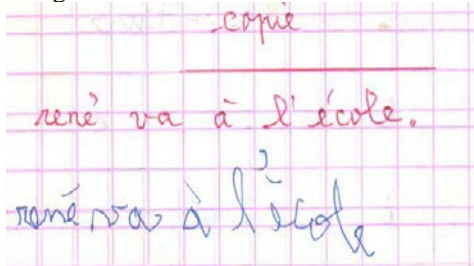 copie
rené va à l'école.
rené va à l'école